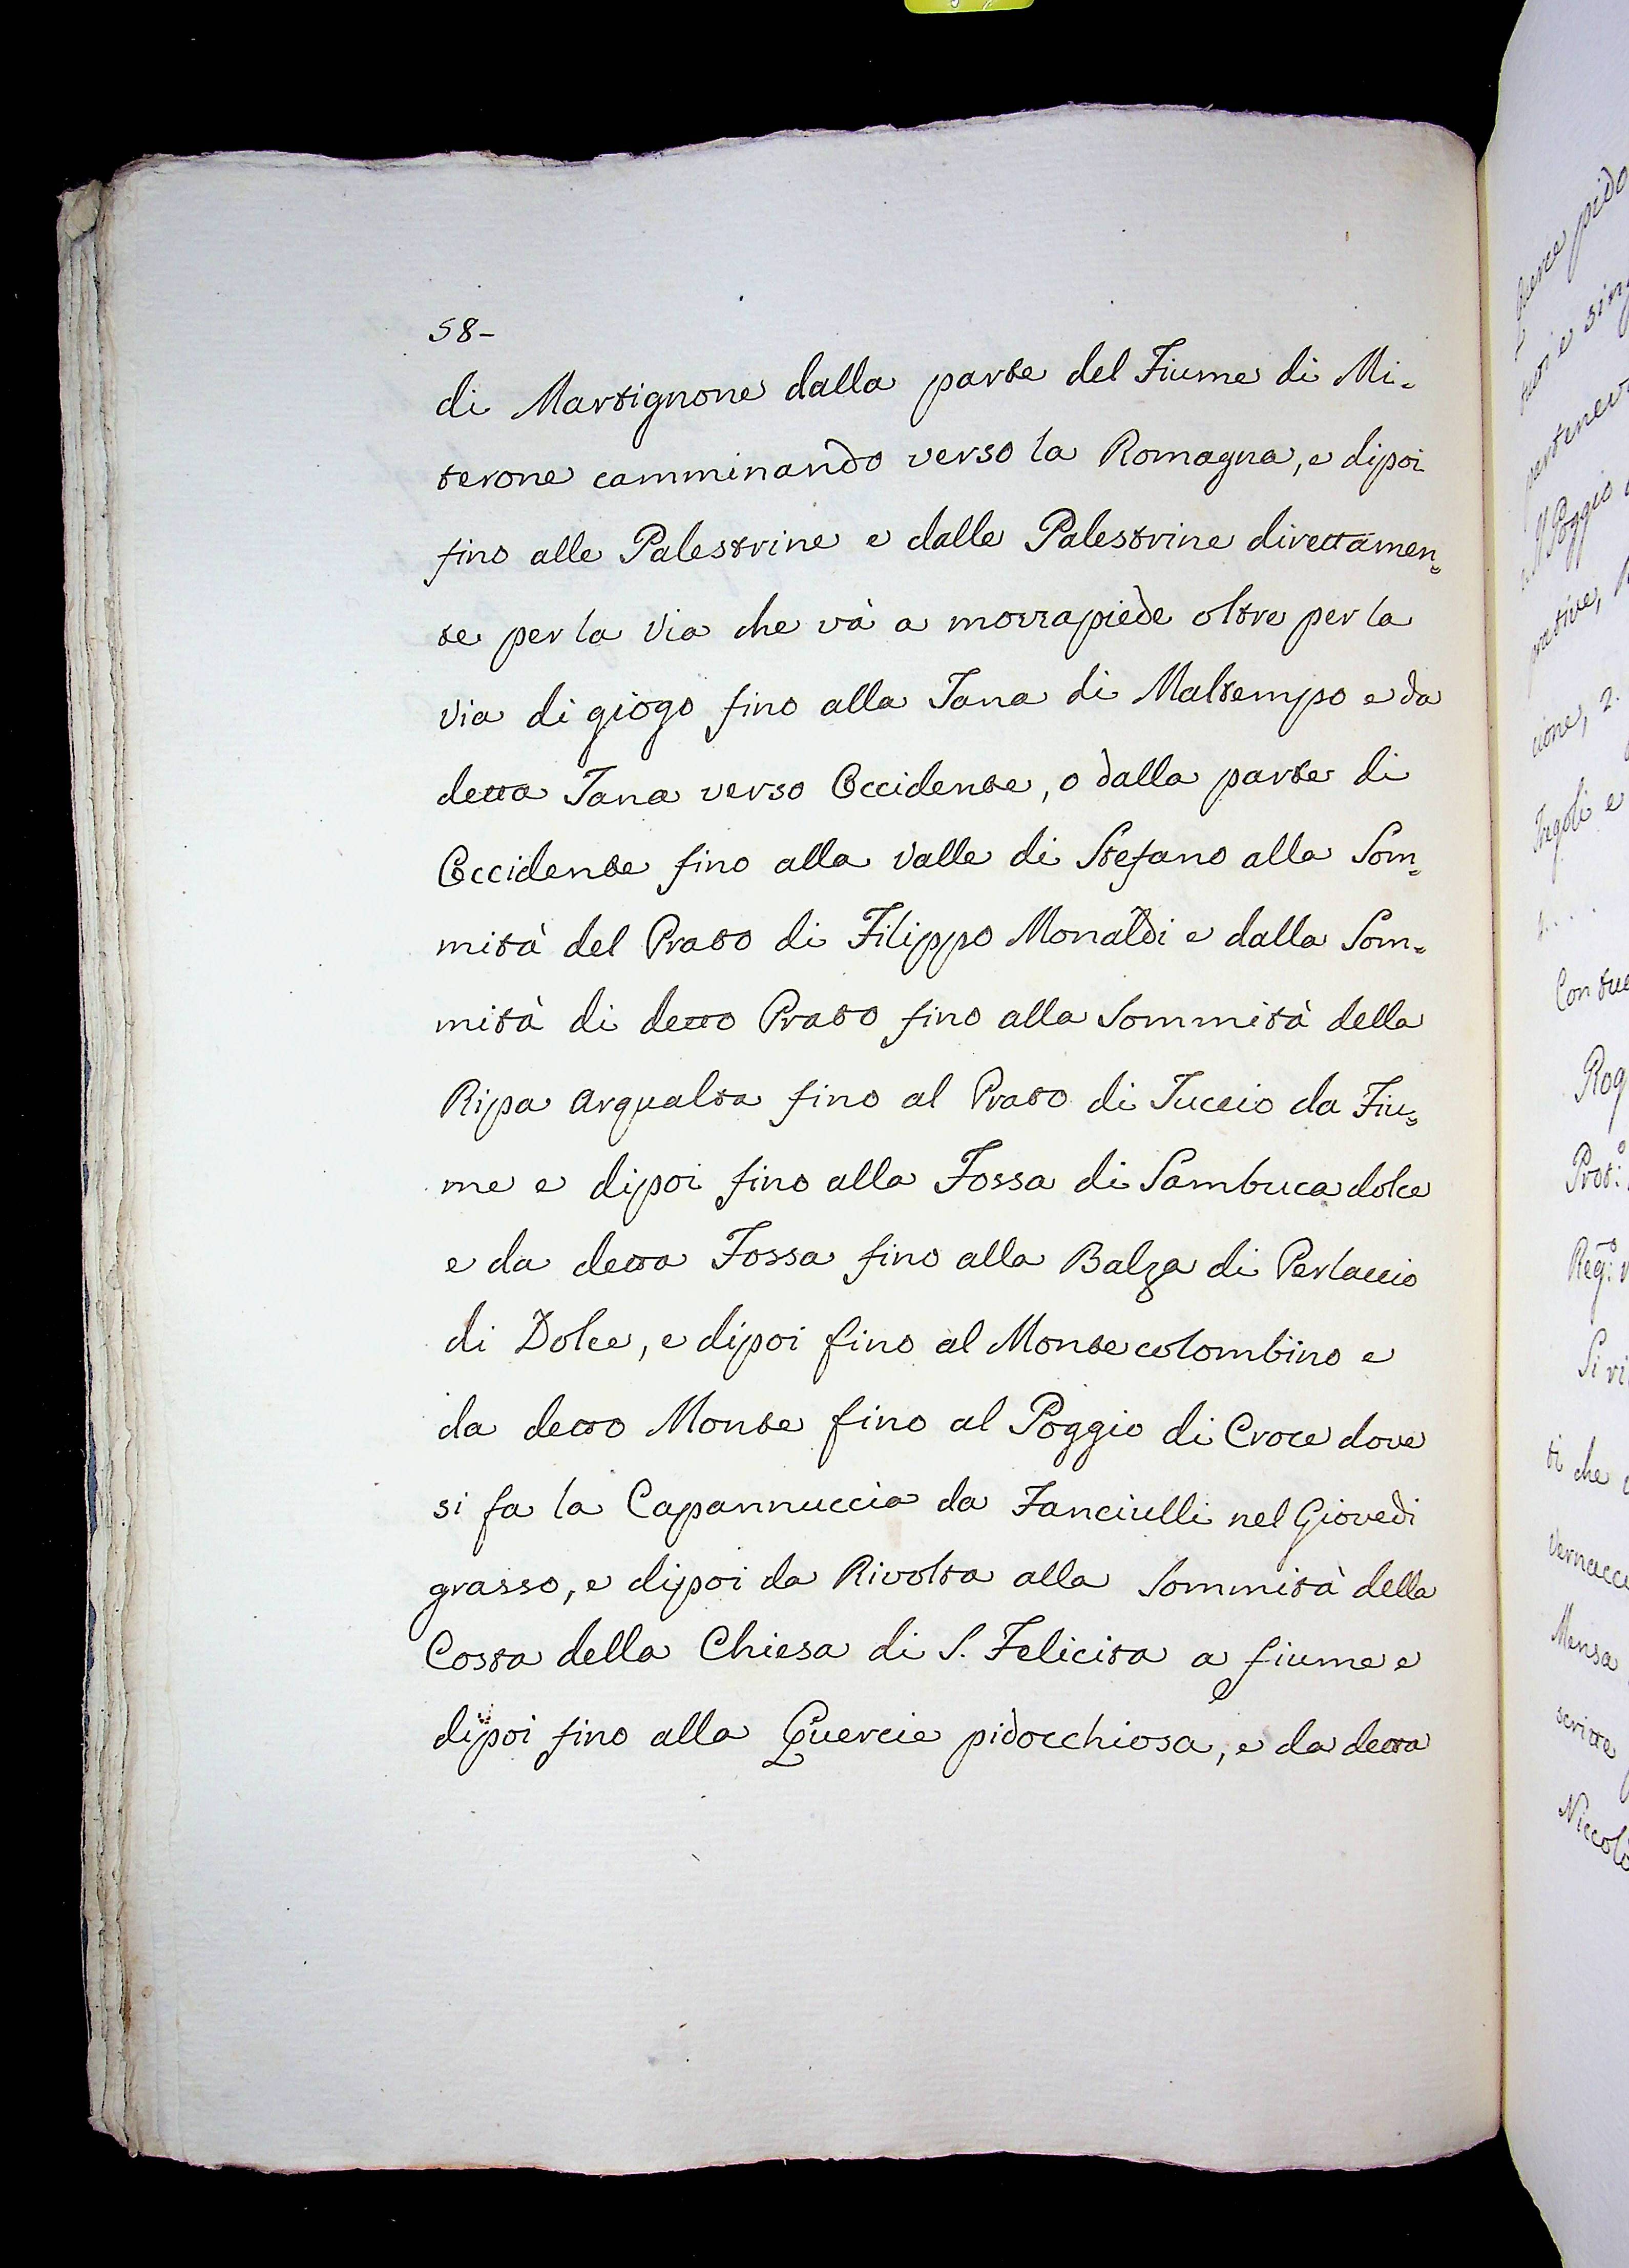 58-
di Martignone dalla parte del Fiume di Mi-
terone camminando verso la Romagna, e dipoi
fino alle Palestrine e dalle Palestrine direttamen=
te per la Via che và a mozzapiede oltre per la
Via di giogo fino alla Tana di Maltempo e da
detta Tana verso Occidente, o dalla parte di
Occidente fino alla Valle di Stefano alla Som=
mità del Prato di Filippo Monaldi e dalla Som=
mità di detto Prato fino alla Sommità della
Ripa arqualta fino al Prato di Tuccio da Fiu=
me e dipoi fino alla Fossa di Sambuca dolce
e da detta Fossa fino alla Balza di Perlaccio
di Dolce, e dipoi fino al Monte colombino e
da detto Monte fino al Poggio di Croce dove
si fa la Capannuccia da Fanciulli nel Giovedì
grasso, e dipoi da Rivolta alla Sommità della
Costa della Chiesa di S. Felicita a fiume e
dipoi fino alla Quercie pidocchiosa, e da detta